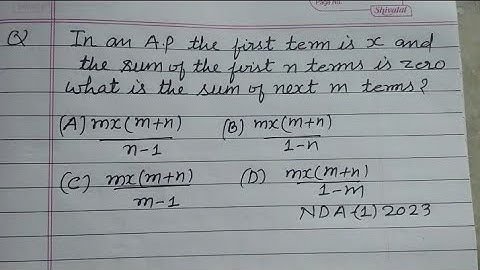 Page No.
Shivalal
Q In an A.P the first term is x and
the sum of the first n terms is zero
what is the sum of next m terms?
(A) mx(m+n)/n-1 (B) mx(m+n)/1-n
(C) mx(m+n)/m-1 (D) mx(m+n)/1-m
NDA-(1) 2023